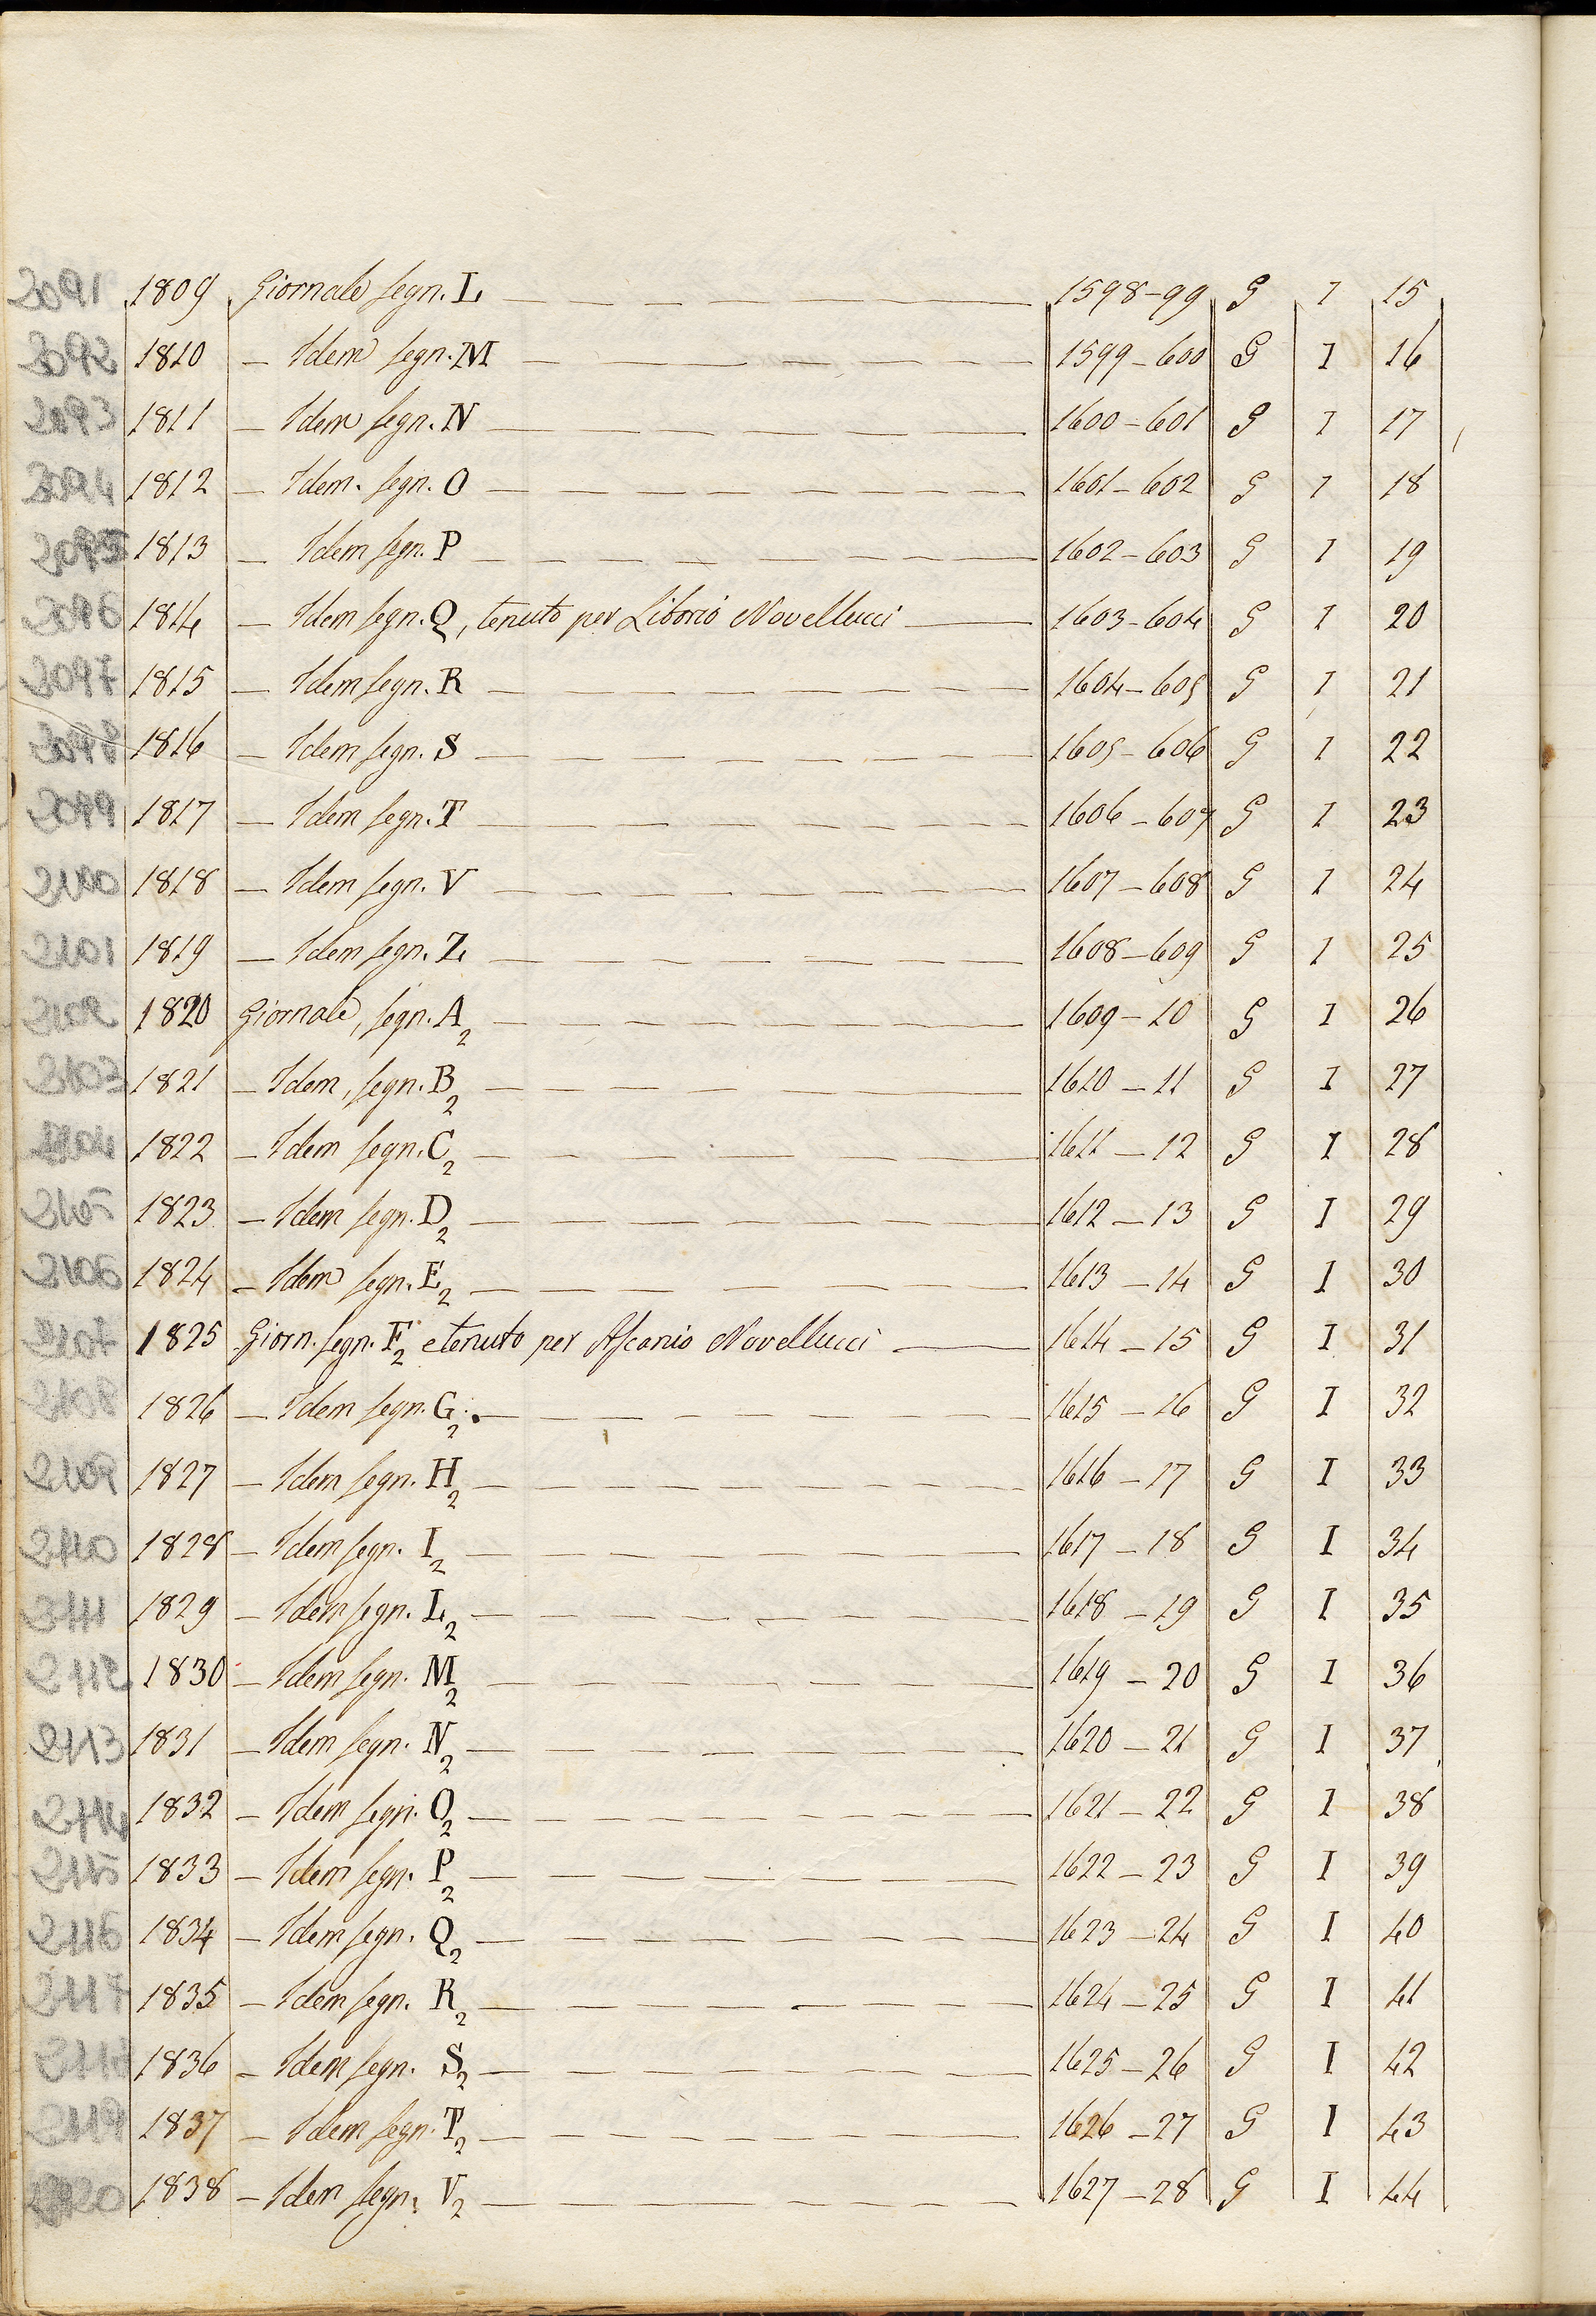 2091 1809 Giornale segn. L 1598-99 G I 15
2092 1810 — Idem segn. M 1599-600 G I 16
2093 1811 — Idem segn. N 1600-601 G I 17
2094 1812 — Idem. segn. O 1601-602 G I 18
2095 1813 — Idem segn. P 1602-603 G I 19
2096 1814 — Idem segn. Q, tenuto per Liborio Novellucci 1603-604 G I 20
2097 1815 — Idem segn. R 1604-605 G I 21
2098 1816 — Idem segn. S 1605-606 G I 22
2099 1817 — Idem segn. T 1606-607 G I 23
2100 1818 — Idem segn. V 1607-608 G I 24
2101 1819 — Idem segn. Z 1608-609 G I 25
2102 1820 Giornale, segn. A2 1609-10 G I 26
2103 1821 — Idem, segn. B2 1610-11 G I 27
2104 1822 — Idem segn. C2 1611-12 G I 28
2105 1823 — Idem segn. D2 1612-13 G I 29
2106 1824 — Idem segn. E2 1613-14 G I 30
2107 1825 Giorn. segn. F2 e tenuto per Ascanio Novellucci 1614-15 G I 31
2108 1826 — Idem segn. G2. 1615-16 G I 32
2109 1827 — Idem segn. H2 1616-17 G I 33
2110 1828 — Idem segn. I2 1617-18 G I 34
2111 1829 — Idem segn. L2 1618-19 G I 35
2112 1830 — Idem segn. M2 1619-20 G I 36
2113 1831 — Idem segn. N2 1620-21 G I 37
2114 1832 — Idem segn. O2 1621-22 G I 38
2115 1833 — Idem segn. P2 1622-23 G I 39
2116 1834 — Idem segn. Q2 1623-24 G I 40
2117 1835 — Idem segn. R2 1624-25 G I 41
2118 1836 — Idem segn. S2 1625-26 G I 42
2119 1837 — Idem segn. T2 1626-27 G I 43
2120 1838 — Idem segn. V2 1627-28 G I 44